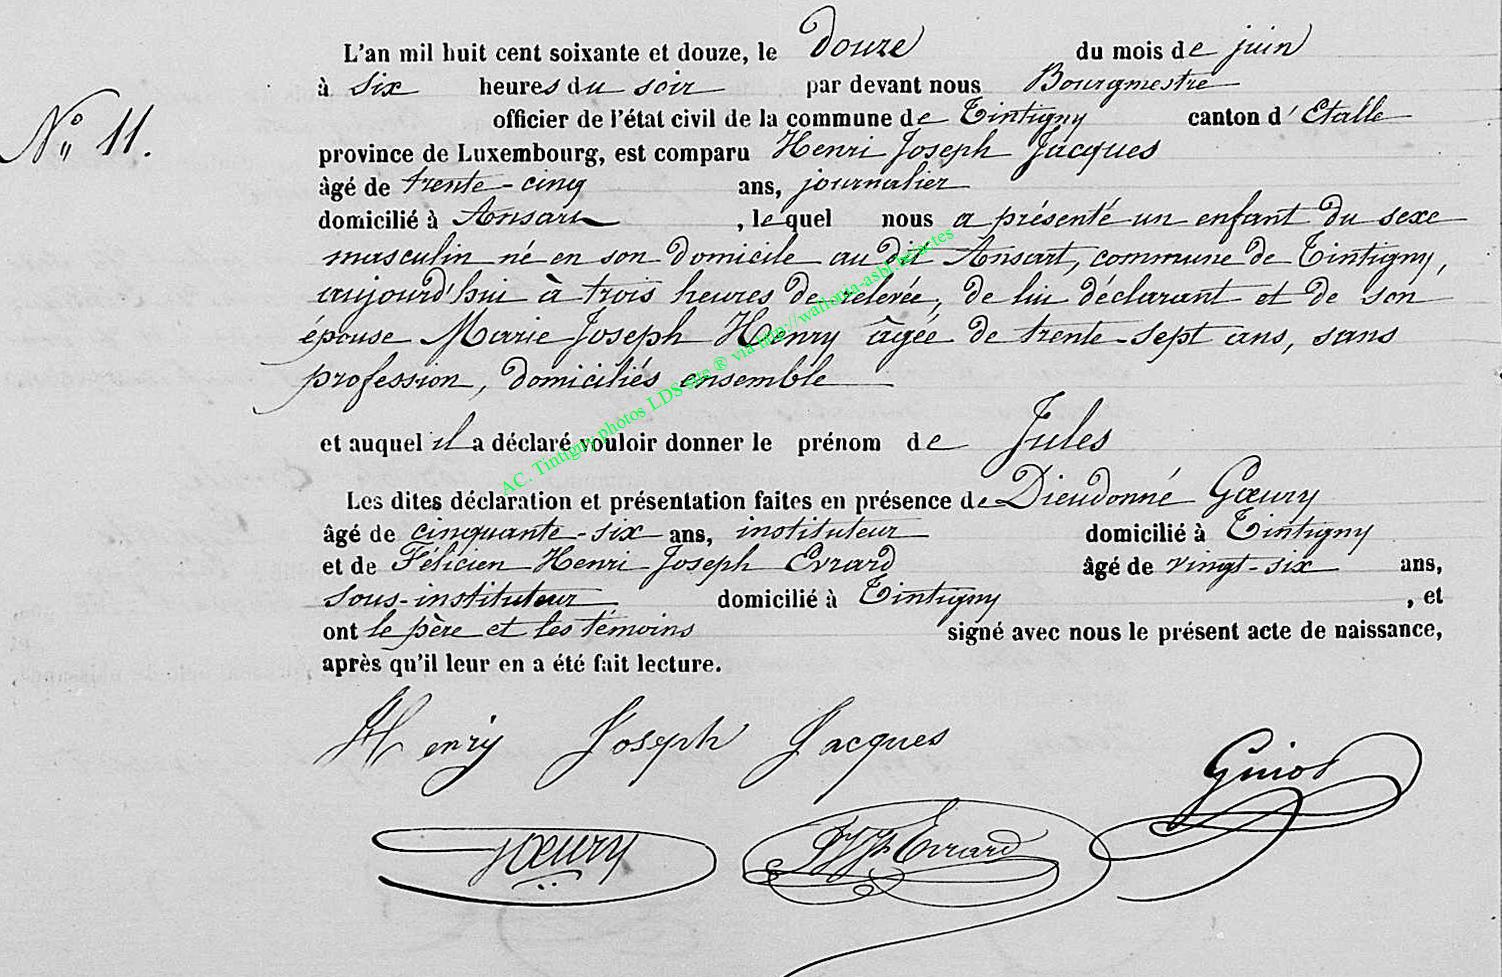 L'an mil huit cent soixante et douze, le Douze du mois de juin
à six heures du soir par devant nous Bourgmestre
N° 11. officier de l'état civil de la commune de Tintigny canton d'Etalle
province de Luxembourg, est comparu Henri Joseph Jacques
âgé de trente-cinq ans, journalier
domicilié à Ansart, lequel nous a présenté un enfant du sexe
masculin né en son domicile au dit Ansart, commune de Tintigny,
aujourd'hui à trois heures de relevée, de lui déclarant et de son
épouse Marie Joseph Henry âgée de trente-sept ans, sans
profession, domiciliés ensemble
et auquel il a déclaré vouloir donner le prénom de Jules
Les dites déclaration et présentation faites en présence de Dieudonné Gœury
âgé de cinquante-six ans, instituteur domicilié à Tintigny
et de Félicien Henri Joseph Evrard âgé de vingt-six ans,
sous-instituteur domicilié à Tintigny, et
ont le père et les témoins signé avec nous le présent acte de naissance,
après qu'il leur en a été fait lecture.
Henry Joseph Jacques
Guiot
Gœury
Evrard
AC. Tintigny photos LDS site ® via http://wallonia-asbl.be/actes